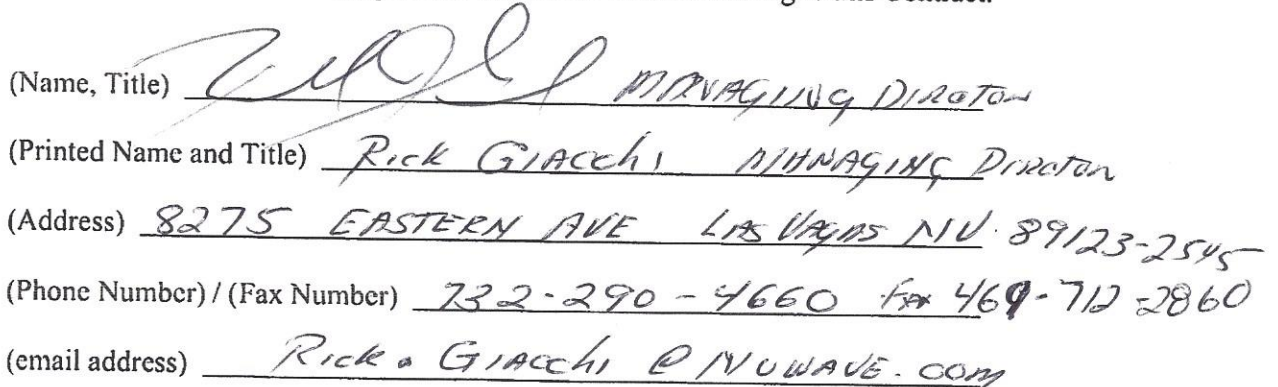 Contract.
(Name, Title) MANAGING DIRCTOR
(Printed Name and Title) Rick GIAcchi MANAGING DIRCTOR
(Address) 8275 EASTERN AVE LAS VAGAS NV. 89123-2545
(Phone Number) / (Fax Number) 732-290-4660 FAX 469-712-2860
(email address) Rick.GIAcchi@NUWAVE.com